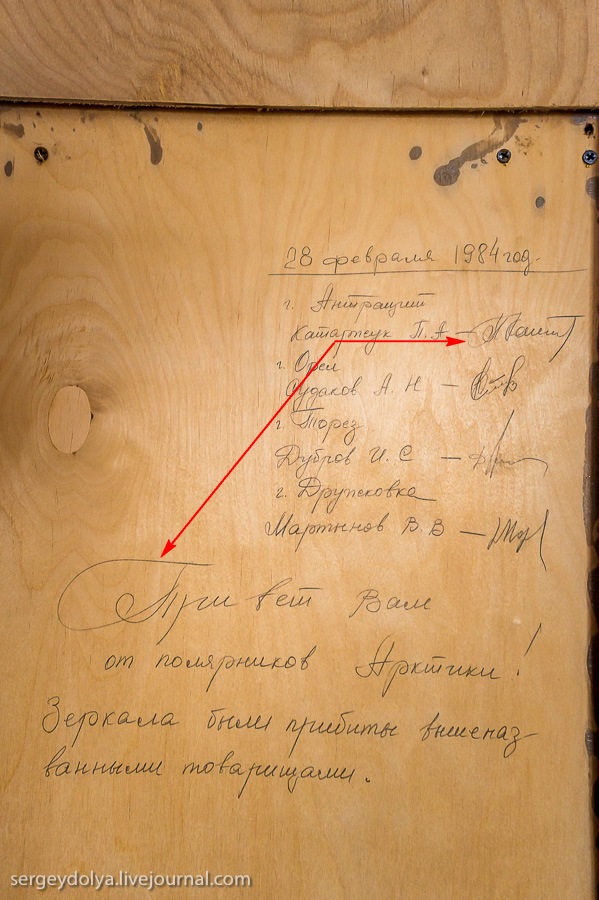 28 февраля 1984 год.
г. Антрацит
Катаржук П. А –
г. Орел
Судаков А. Н –
г. Торез
Дубров И. С –
г. Дружковка
Мартынов В. В –
Привет Вам
от полярников Арктики!
Зеркала были прибиты вышеназ-
ванными товарищами.
sergeydolya.livejournal.com